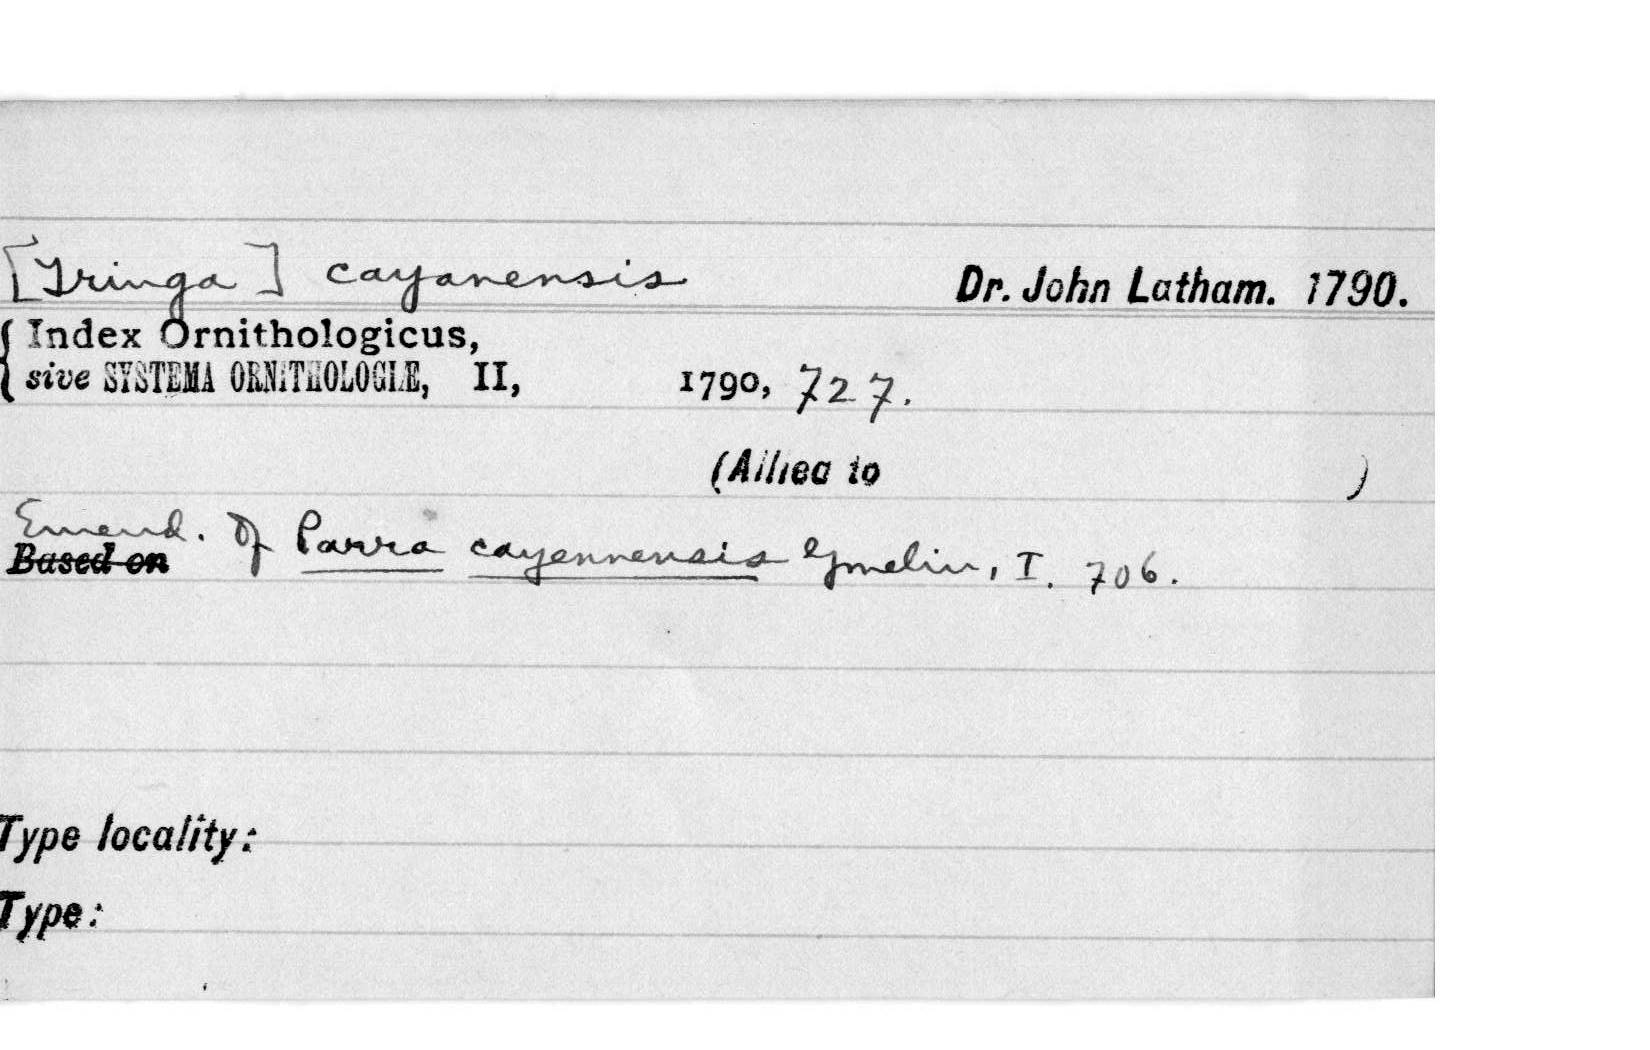 [Tringa] cayanensis Dr. John Latham. 1790.
Index Ornithologicus,
sive SYSTEMA ORNITHOLOGIÆ, II, 1790, 727.
(Allied to )
Emend. Of Parra cayennensis Gmelin, I. 706.
Based on
Type locality:
Type: